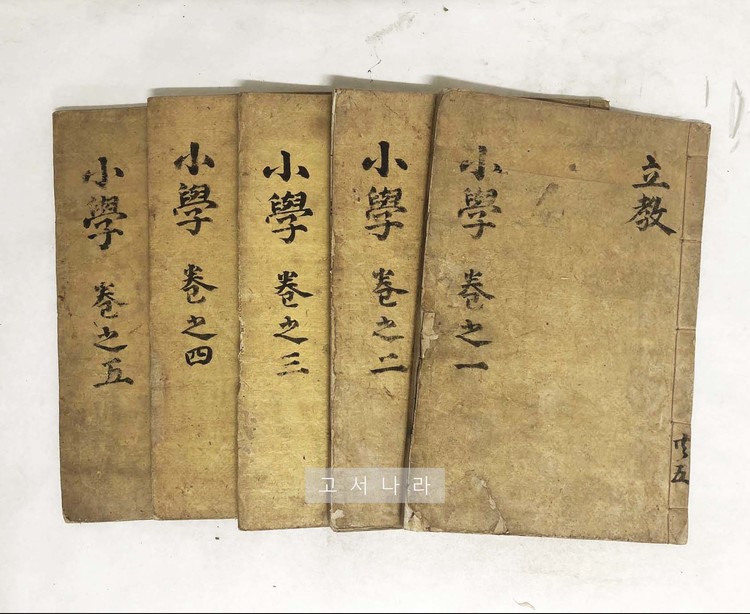 立教
共五
小學 卷之一
小學 卷之二
小學 卷之三
小學 卷之四
小學 卷之五
고서나라